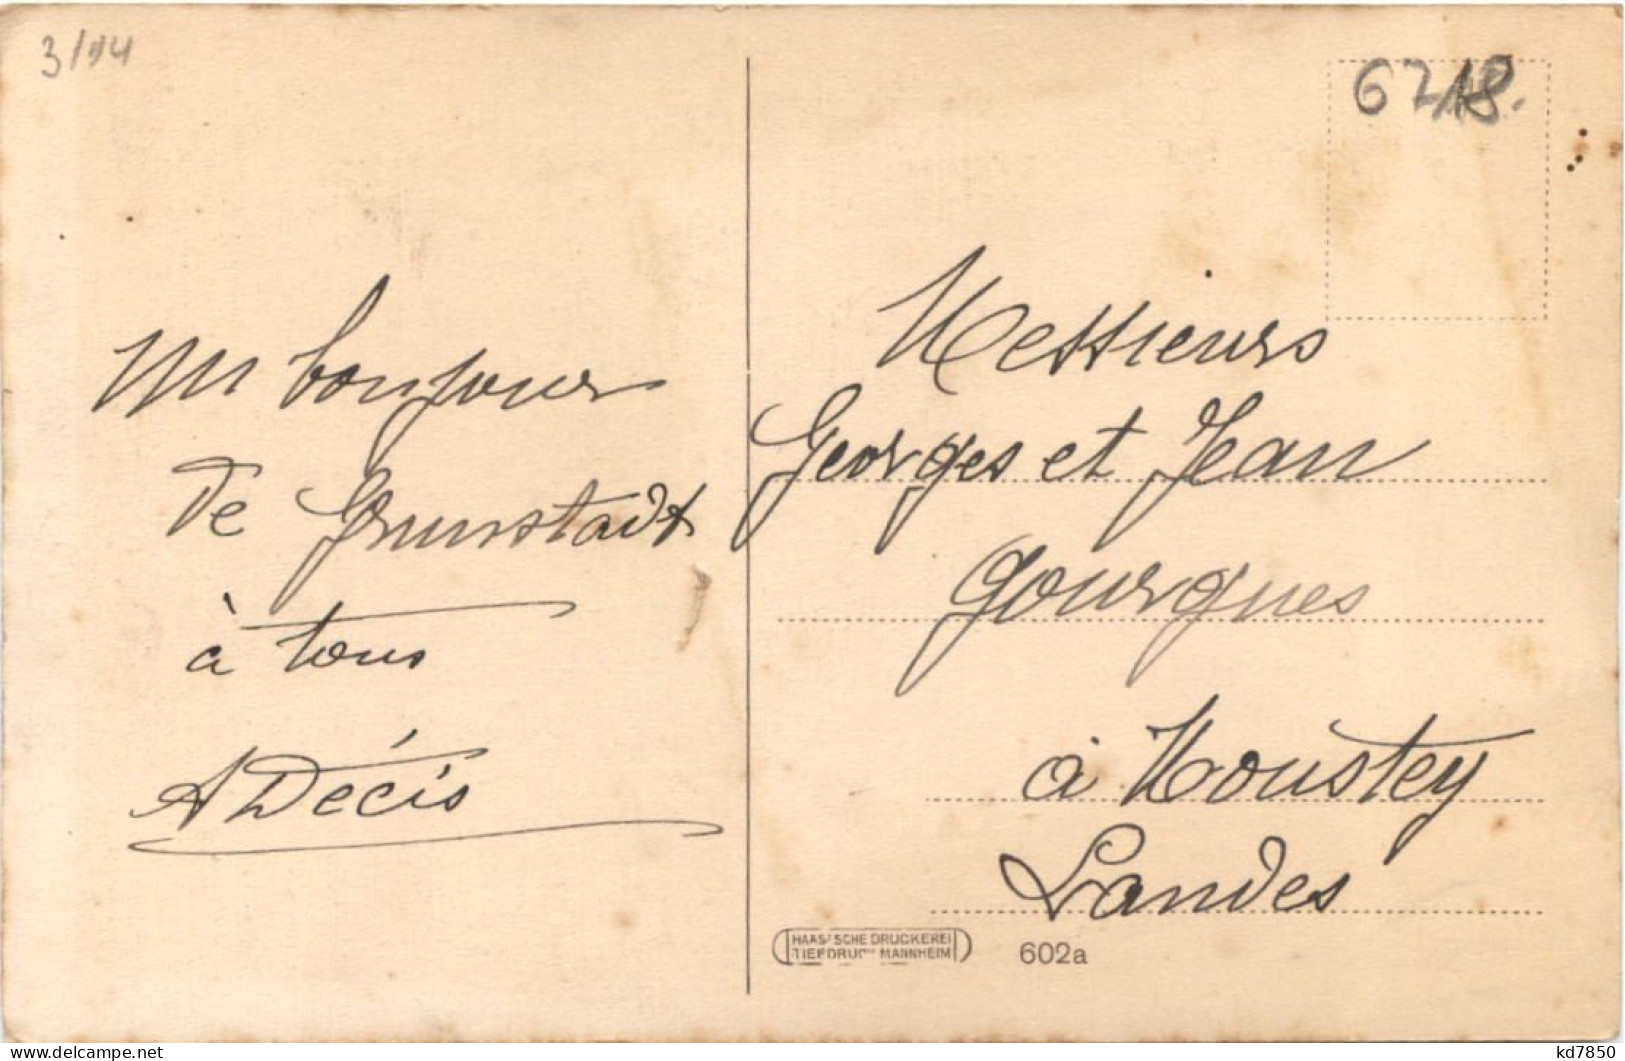 3/14
6718.
Un bonjour
de Grunstadt
à tous
A Décis
Messieurs
Georges et Jean
Gourgues
à Moustey
Landes
HAAS'SCHE DRUCKEREI
TIEFDRUCK MANNHEIM
602a
kd7850